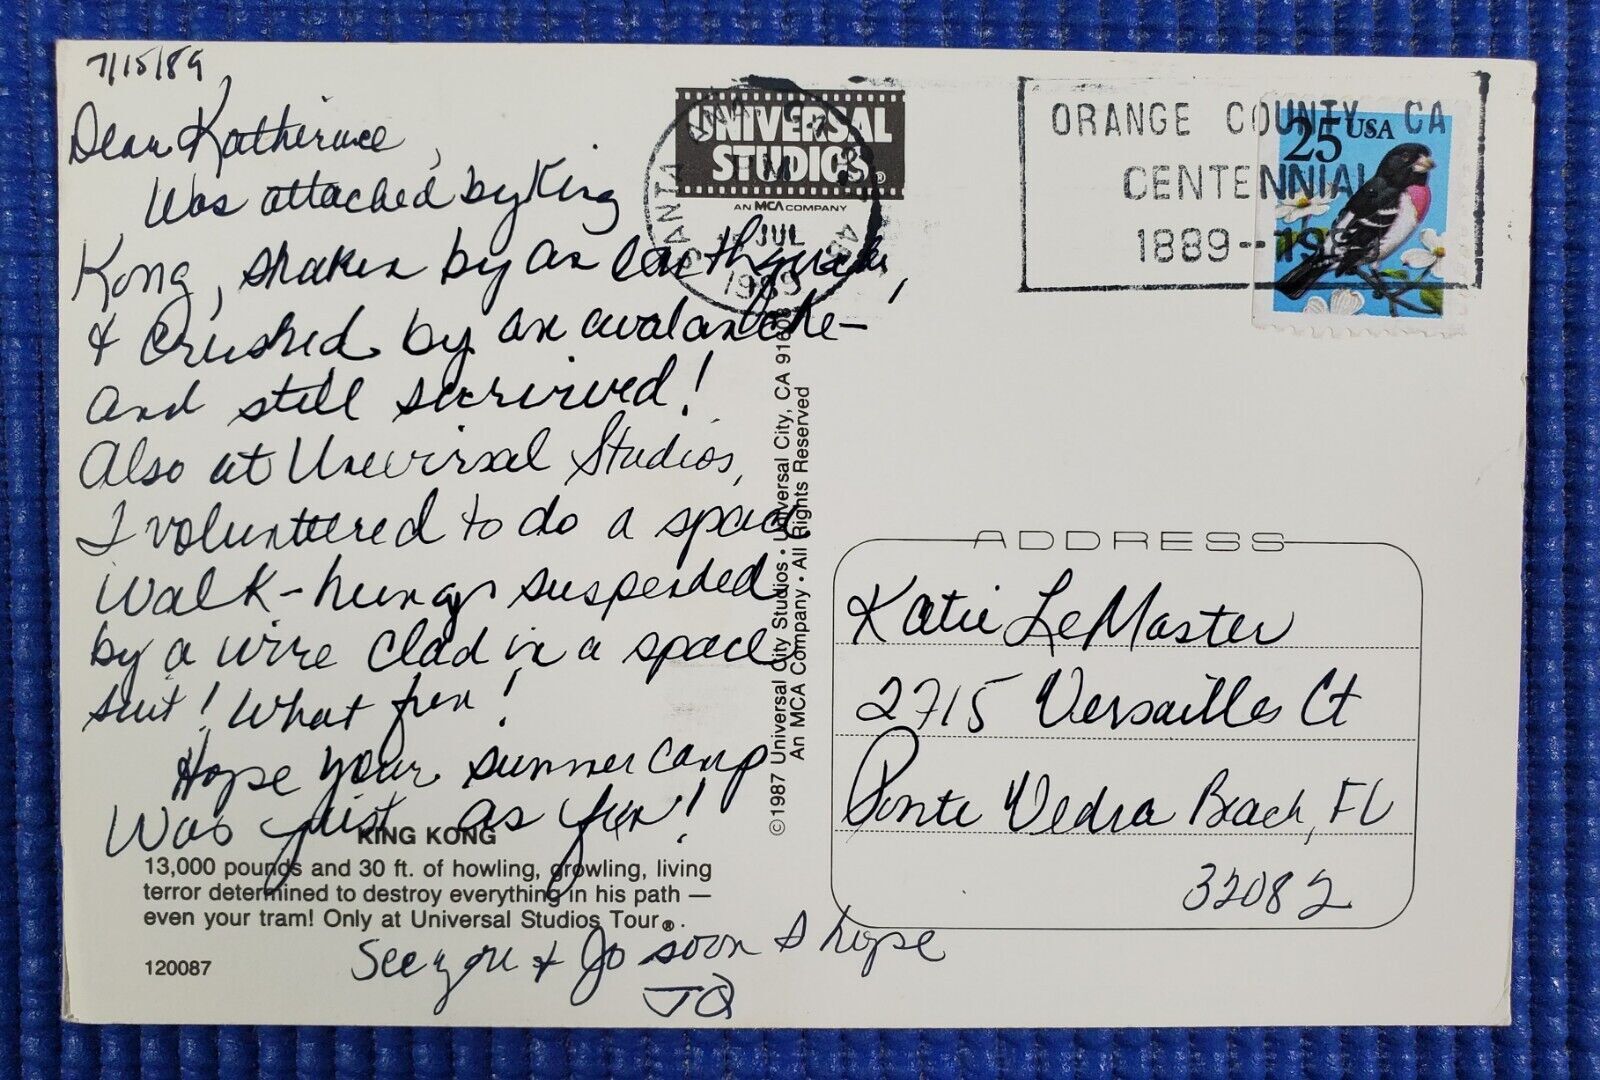 7/15/89
Dear Katherine,
Was attacked by King
Kong, shaken by an earthquake,
& crushed by an avalanche—
and still survived!
Also at Universal Studios,
I volunteered to do a space
walk-hung suspended
by a wire clad in a space
suit! What fun!
Hope your summer camp
was just as fun!
See you & Jo soon I hope
JQ
KING KONG
13,000 pounds and 30 ft. of howling, growling, living
terror determined to destroy everything in his path —
even your tram! Only at Universal Studios Tour®.
120087
©1987 Universal City Studios • Universal City, CA 91608
An MCA Company • All Rights Reserved
UNIVERSAL
STUDIOS®
AN MCA COMPANY
SANTA ANA CA
PM
JUL
1989
ORANGE COUNTY, CA
CENTENNIAL
1889--1989
25 USA
ADDRESS
Katie LeMaster
2715 Versailles Ct
Ponte Vedra Beach, FL
32082